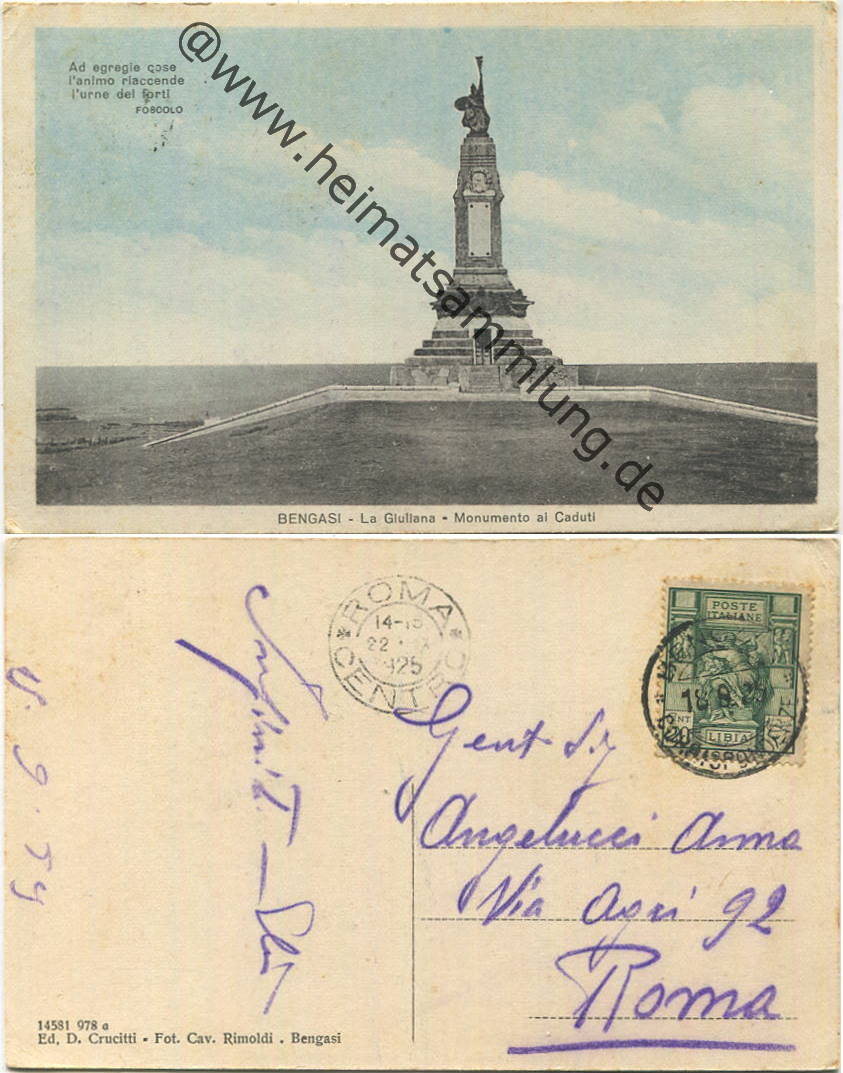 Ad egregie cose
l'animo riaccende
l'urne dei forti
FOSCOLO
@www.heimatsammlung.de
BENGASI - La Giuliana - Monumento ai Caduti
ROMA
14-15
22
1925
CENTRO
POSTE
ITALIANE
18.9.25
CENT
20
LIBIA
Gent Sig
Angelucci Anna
Via Agri 92
Roma
14581 978 a
Ed, D. Crucitti - Fot. Cav. Rimoldi . Bengasi